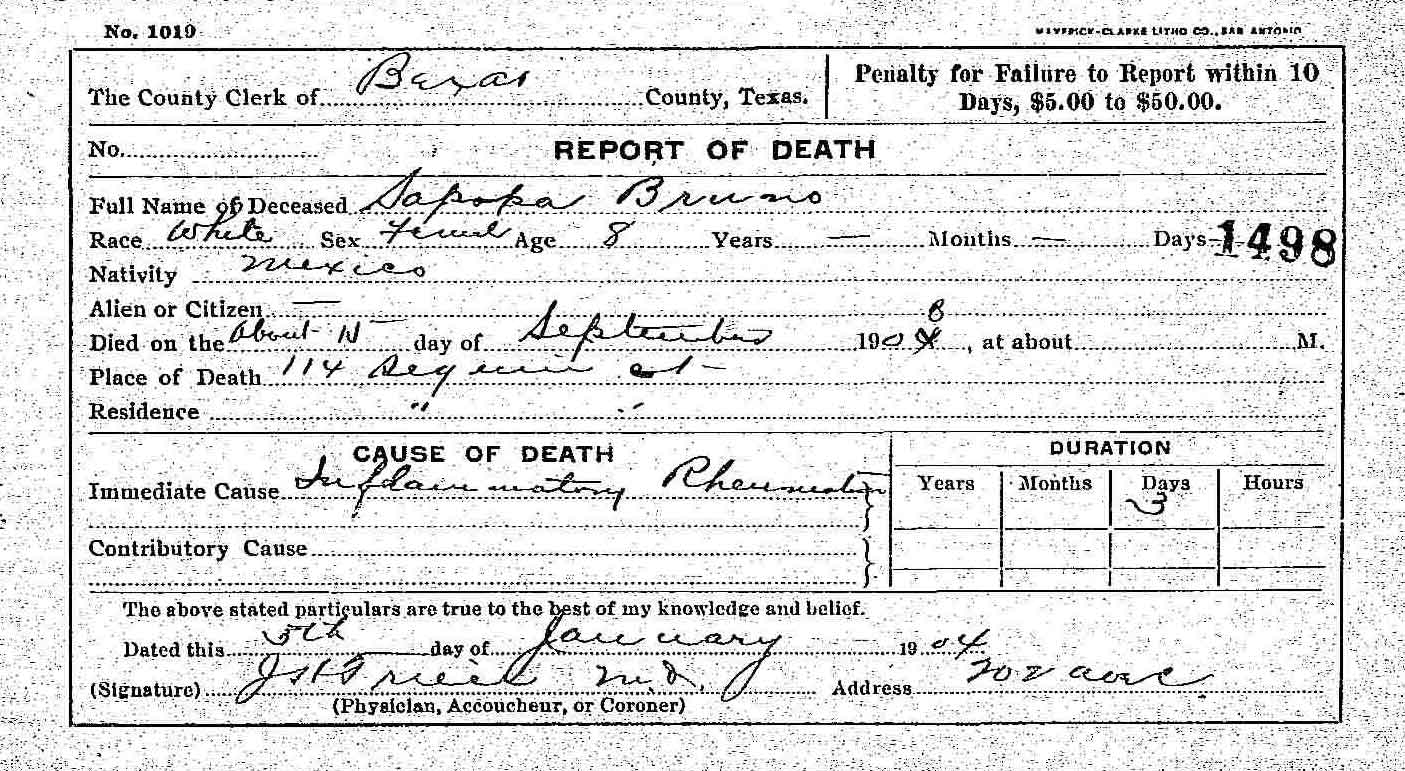 No. 1019 MAVERICK-CLARKE LITHO CO., SAN ANTONIO
The County Clerk of Bexar County, Texas.
Penalty for Failure to Report within 10
Days, $5.00 to $50.00.
No. REPORT OF DEATH
Full Name of Deceased Sapopa Bruno
Race White Sex Femal Age 8 Years — Months — Days 1498
Nativity Mexico
Alien or Citizen —
Died on the About day of September 190 8, at about M.
Place of Death 114 Seguin st
Residence " "
CAUSE OF DEATH DURATION
Immediate Cause Inflammatory Rheumatism Years Months Days Hours
3
Contributory Cause
The above stated particulars are true to the best of my knowledge and belief.
Dated this 5th day of January 1904
(Signature) M.D. Address
(Physician, Accoucheur, or Coroner)